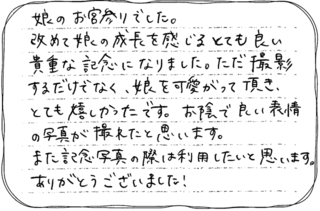 娘のお宮参りでした。
改めて娘の成長を感じるとても良い
貴重な記念になりました。ただ撮影
するだけでなく、娘を可愛がって頂き、
とても嬉しかったです。お陰で良い表情
の写真が撮れたと思います。
また記念写真の際は利用したいと思います。
ありがとうございました!